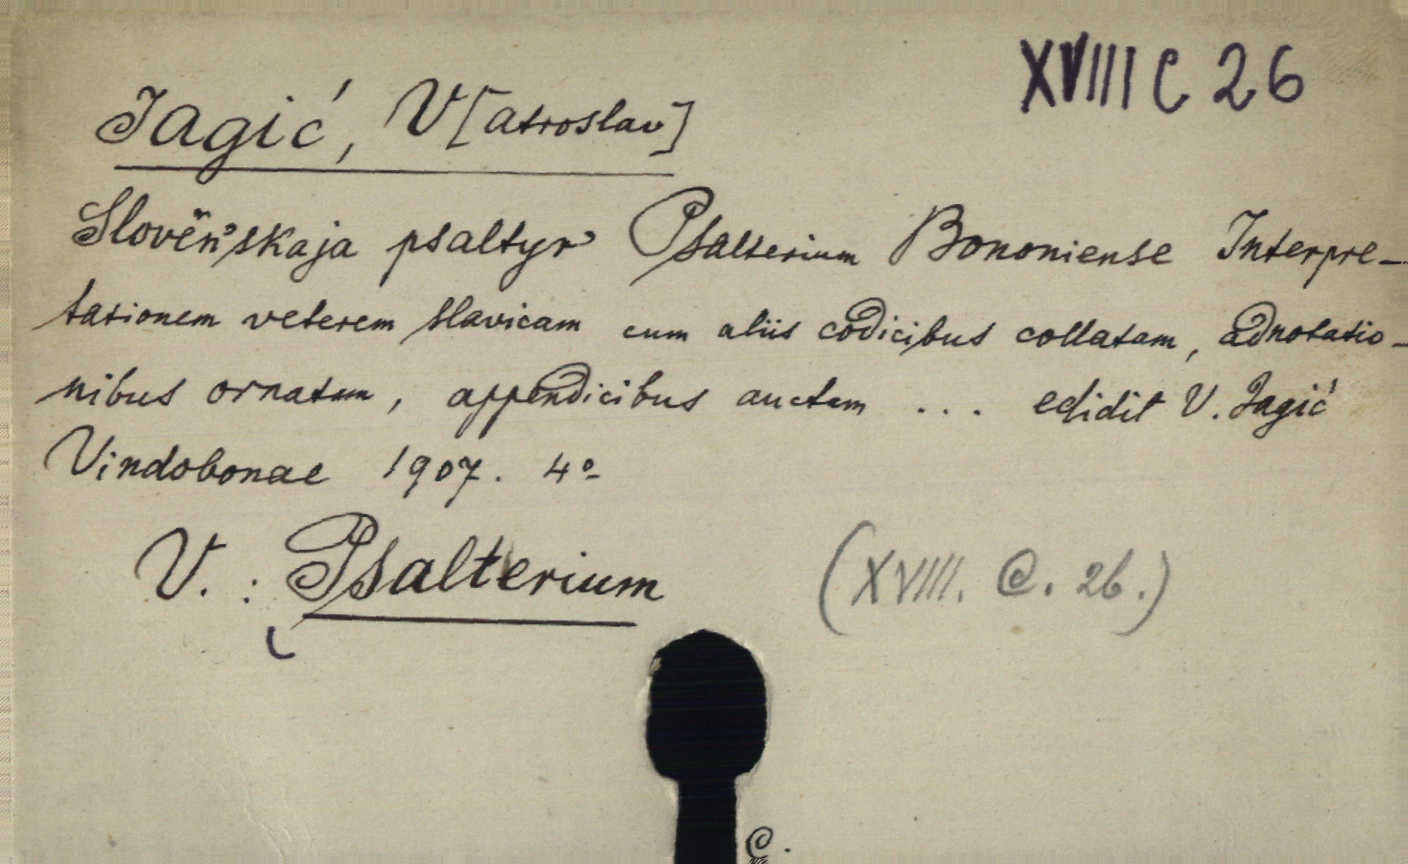 XVIII C 26
Jagić, V[atroslav]
Slověn'skaja psaltyr' Psalterium Bononiense Interpre-
tationem veterem slavicam cum aliis codicibus collatam, adnotatio-
nibus ornatam, appendicibus auctam ... edidit V. Jagić
Vindobonae 1907. 4º
V. : Psalterium (XVIII. C. 26.)
C.